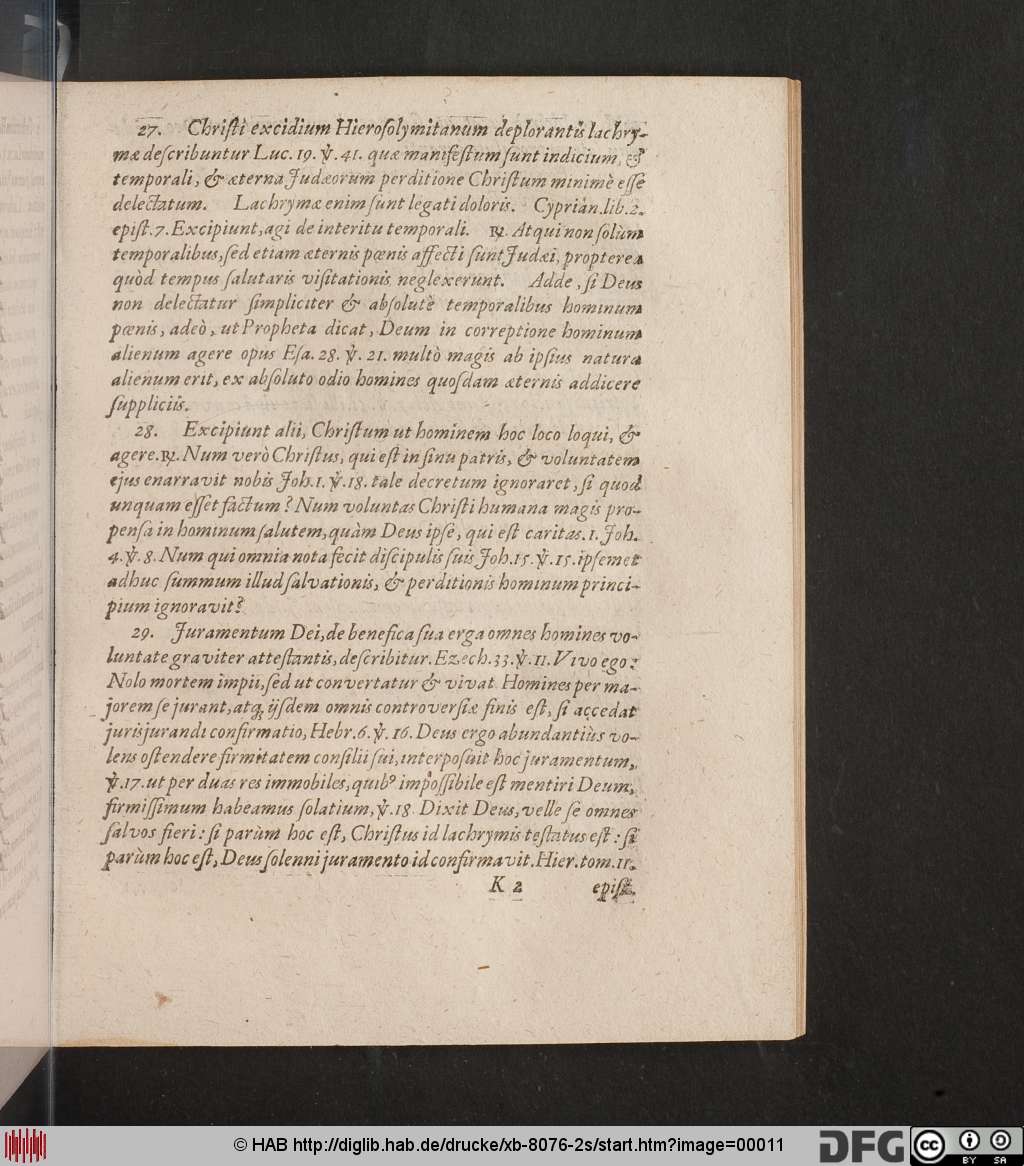 27. Chriſti excidium Hieroſolymitanum deplorantis lachry-
mæ deſcribuntur Luc. 19. ℣. 41. quæ manifeſtum ſunt indicium, &
temporali, & æterna Judæorum perditione Chriſtum minimè eſſe
delectatum. Lachrymæ enim ſunt legati doloris. Cyprian. lib. 2.
epiſt. 7. Excipiunt, agi de interitu temporali. ℞. Atqui non ſolùm
temporalibus, ſed etiam æternis pœnis affecti ſunt Judæi, propterea
quòd tempus ſalutaris viſitationis neglexerunt. Adde, ſi Deus
non delectatur ſimpliciter & abſolutè temporalibus hominum
pœnis, adeò, ut Propheta dicat, Deum in correptione hominum
alienum agere opus Eſa. 28. ℣. 21. multò magis ab ipſius natura
alienum erit, ex abſoluto odio homines quoſdam æternis addicere
ſuppliciis.
28. Excipiunt alii, Chriſtum ut hominem hoc loco loqui, &
agere. ℞. Num verò Chriſtus, qui eſt in ſinu patris, & voluntatem
ejus enarravit nobis Joh. 1. ℣. 18. tale decretum ignoraret, ſi quod
unquam eſſet factum? Num voluntas Chriſti humana magis pro-
penſa in hominum ſalutem, quàm Deus ipſe, qui eſt caritas. 1. Joh.
4. ℣. 8. Num qui omnia nota fecit diſcipulis ſuis Joh. 15. ℣. 15. ipſemet
adhuc ſummum illud ſalvationis, & perditionis hominum princi-
pium ignoravit?
29. Juramentum Dei, de benefica ſua erga omnes homines vo-
luntate graviter atteſtantis, deſcribitur. Ezech. 33. ℣. 11. Vivo ego:
Nolo mortem impii, ſed ut convertatur & vivat Homines per ma-
jorem ſe jurant, atq; ijſdem omnis controverſiæ finis eſt, ſi accedat
jurisjurandi confirmatio, Hebr. 6. ℣. 16. Deus ergo abundantiùs vo-
lens oſtendere firmitatem conſilii ſui, interpoſuit hoc juramentum,
℣. 17. ut per duas res immobiles, quibꝰ impoſſibile eſt mentiri Deum,
firmiſſimum habeamus ſolatium, ℣. 18 Dixit Deus, velle ſe omnes
ſalvos fieri: ſi parùm hoc eſt, Chriſtus id lachrymis teſtatus eſt: ſi
parùm hoc eſt, Deus ſolenni juramento id confirmavit. Hier. tom. 11.
K 2 epiſt.
© HAB http://diglib.hab.de/drucke/xb-8076-2s/start.htm?image=00011
DFG cc BY SA